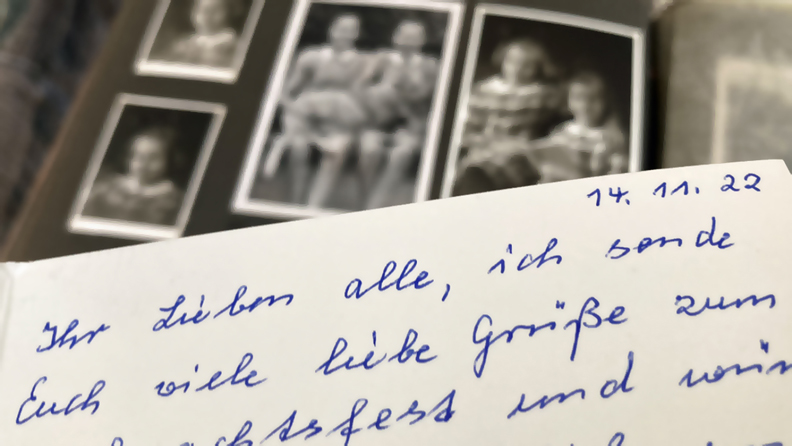 14. 11. 22
Ihr Lieben alle, ich sende
Euch viele liebe Grüße zum
und